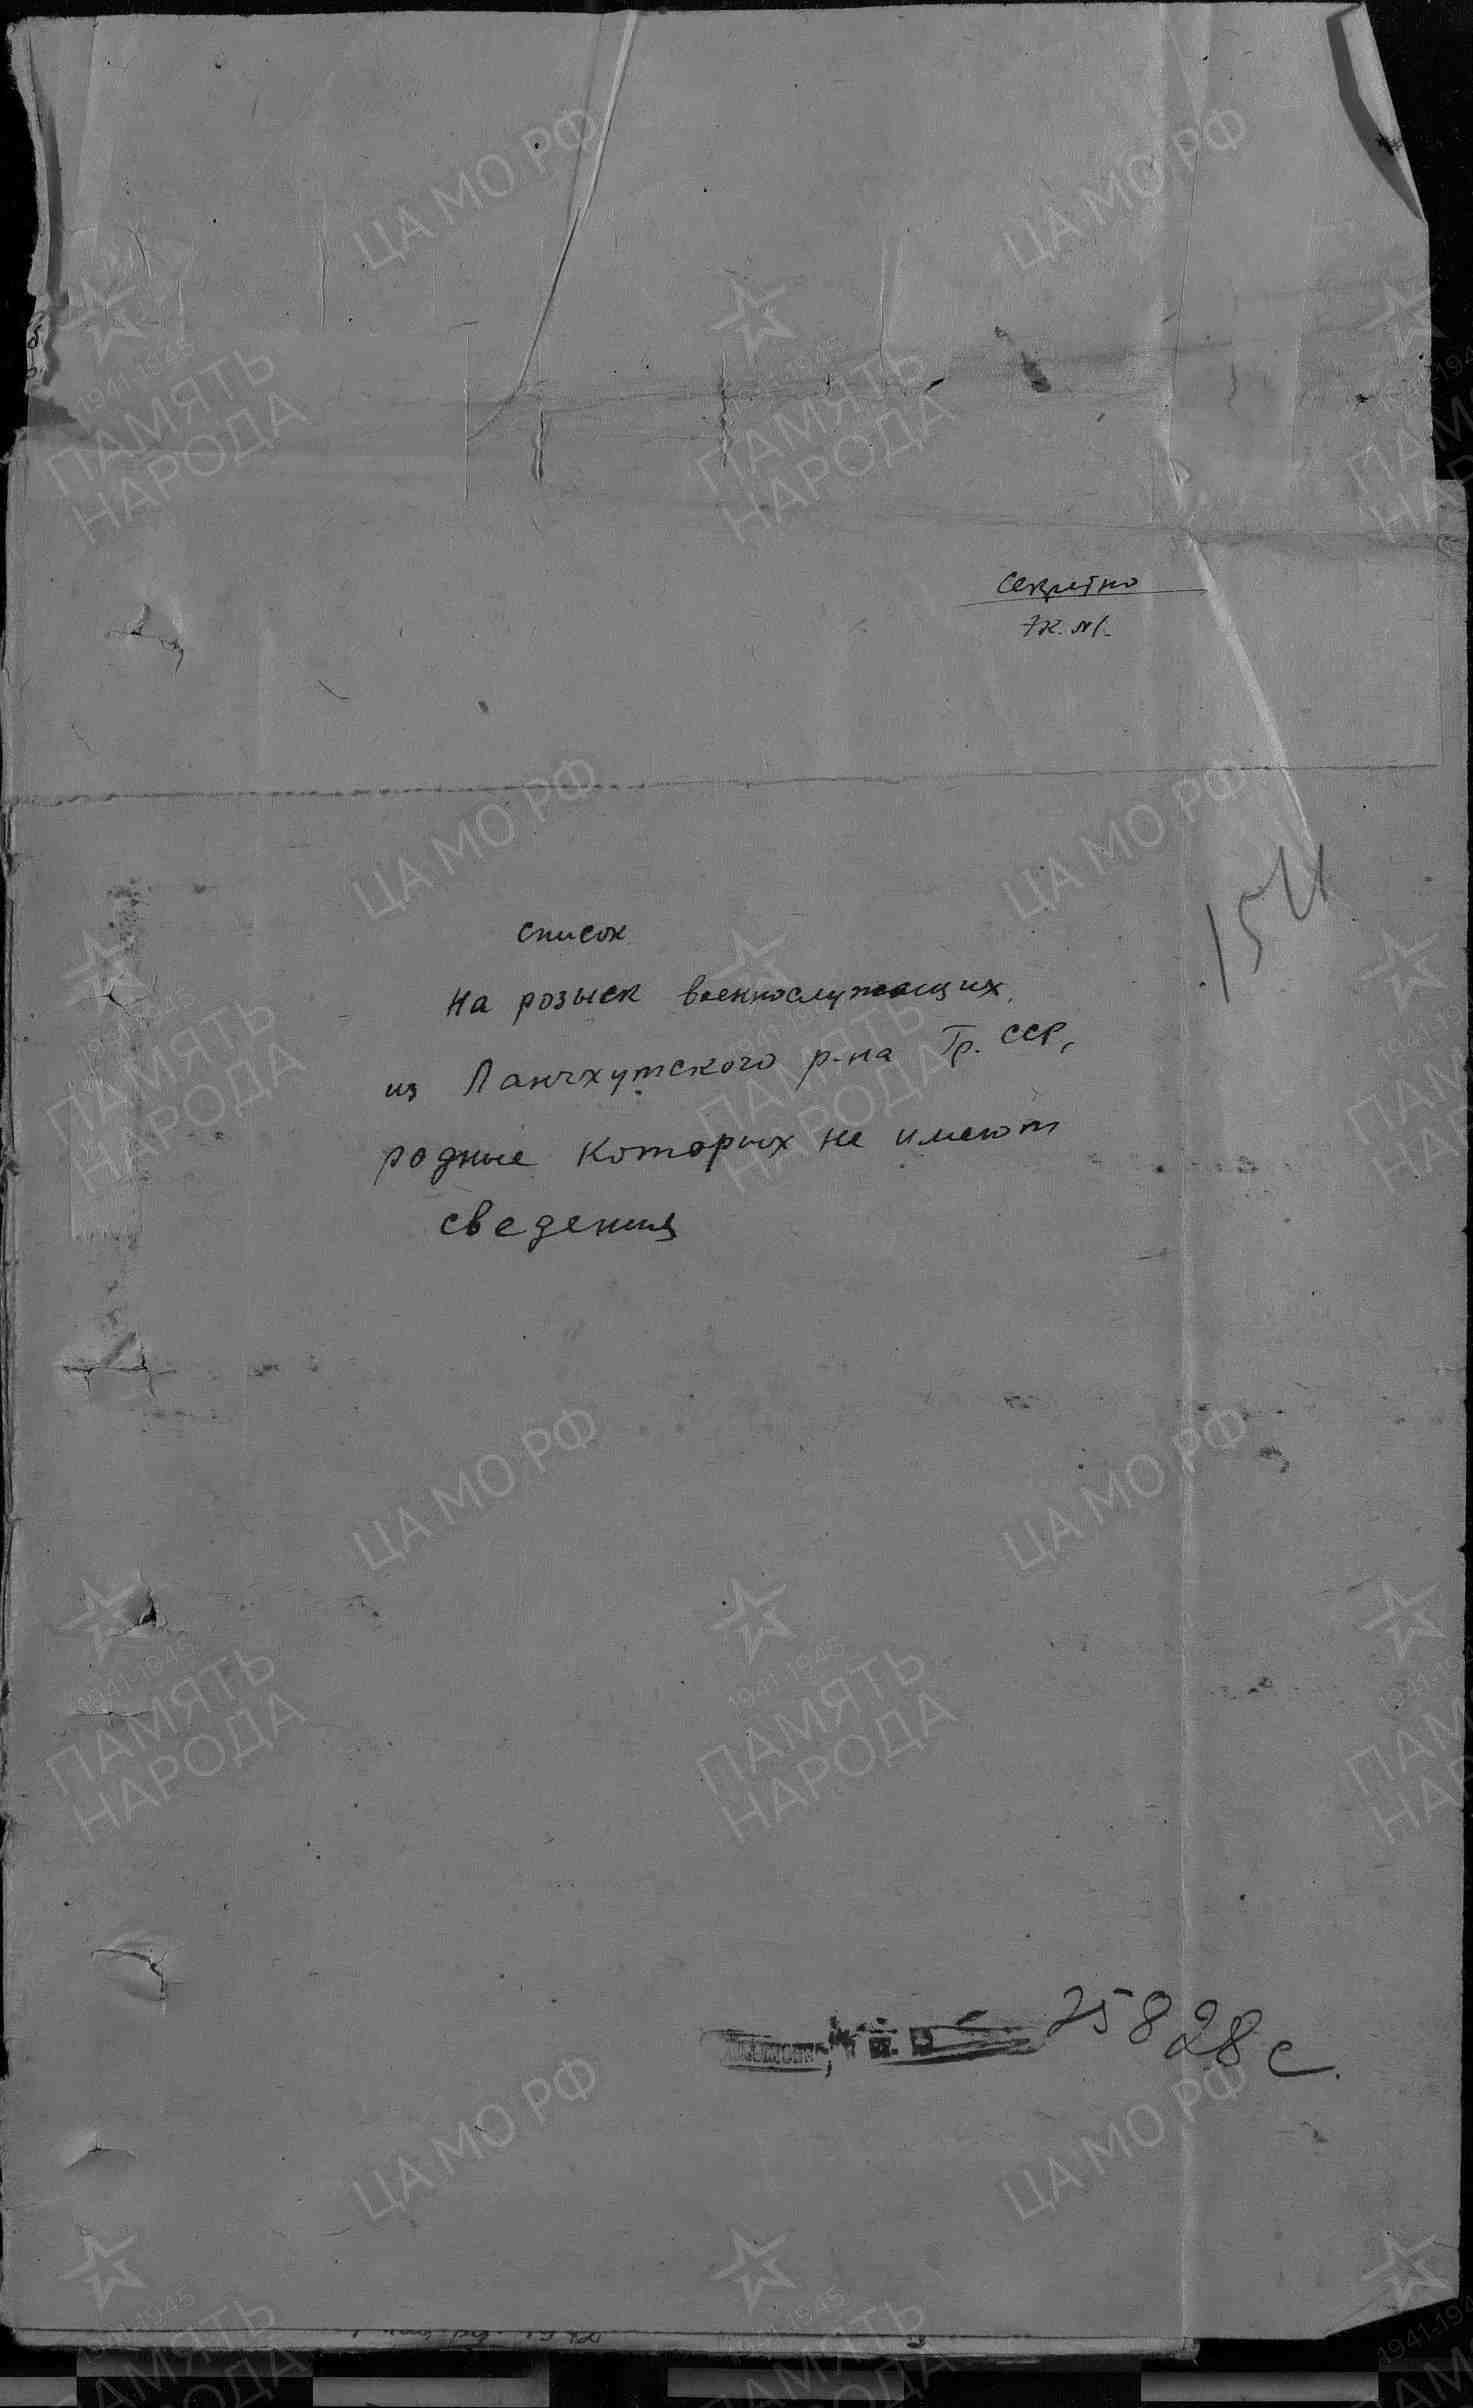 Секретно
Эк. №1.
154
список
на розыск военнослужащих
из Ланчхутского р-на Гр. ССР,
родные которых не имеют
сведения
25828с.
ЦА МО РФ
1941-1945
ПАМЯТЬ
НАРОДА